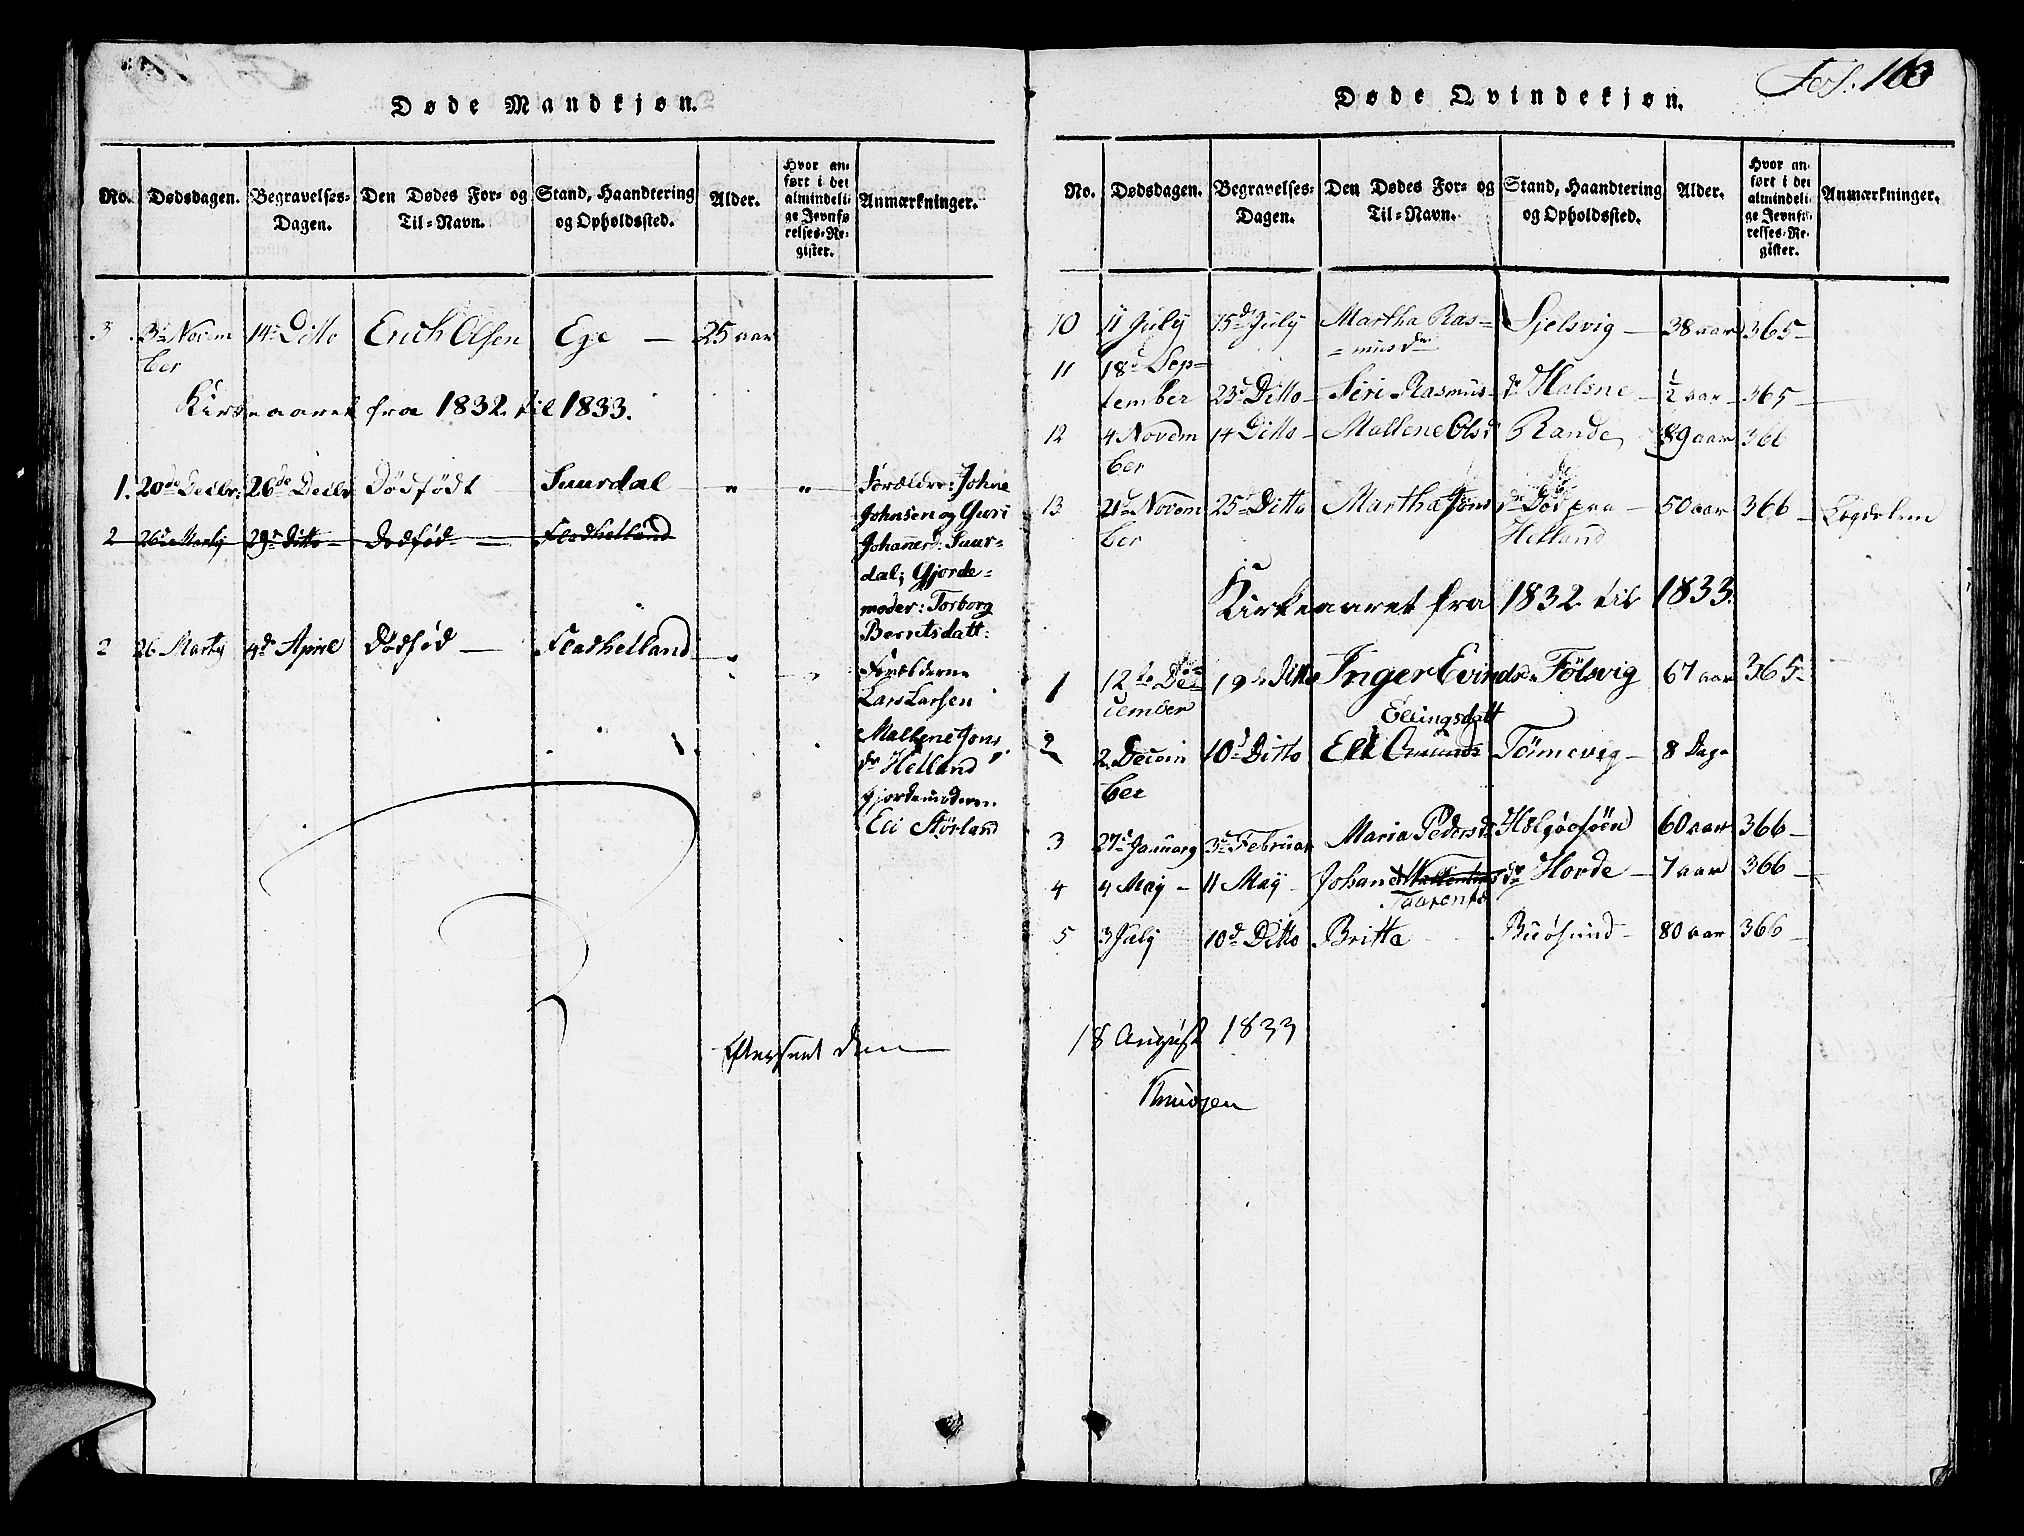 Fol. 163
Døde Mandkjøn.
No. Dødsdagen. Begravelses-Dagen. Den Dødes For- og Til-Navn. Stand, Haandtering og Opholdssted. Alder. Hvor anført i det almindelige Jevnførelses-Register. Anmærkninger.
3 3de Novem 14de Ditto Erich Olsen Ege — 25 aar
ber
Kirkeaaret fra 1832 til 1833.
1. 20de Decbr: 26de Decbr Dødfødt Suurdal " " Forældre: Johne
Johnsen og Guri
Johannesd: Suur-
dal; Gjorde-
moder: Torborg
Berretsdatt:
2 26de Marty 29de Ditto — Dødfød — Fladhelland
2 26 Marty 4de April Dødfød — Fladhelland " "
Forælderne
Lars Larsen
Mallene Jons
dr Helland
Gjordemoderen
Eli Størland
Efterseet den
Døde Qvindekjøn.
No. Dødsdagen. Begravelses-Dagen. Den Dødes For- og Til-Navn. Stand, Haandtering og Opholdssted. Alder. Hvor anført i det almindelige Jevnførelses-Register. Anmærkninger.
10 11 July 15de July Martha Ras= Sjelsvig — 38 aar 365 —
= mus dr
11 18d Sep=
tember 23d Ditto — Siri Rasmus- dr Halsne — ½ aar — 365 —
12 4 Novem 14 Ditto — Mallene Olsd Rande 89 aar 366
ber
13 21de Novem 25d Ditto Martha Jons dr Død fra — 50 aar 366 —
ber Helland
Kirkeaaret fra 1832 til 1833.
1 12te De= 19de Ditto Inger Evindsdr Fölsvig 67 aar 365 —
cember
Ellingsdatt
2 2 Decem 10d Ditto Eli Tömevig — 8 Dage
ber
3 27d January 3d Februar Maria Pedersd Helgöesöen 60 aar 366 —
4 4 May — 11 May — Johan dr Horde — 7 aar 366 —
5 3 July 10d Ditto Britte Buøsund — 80 aar 366 —
18 August 1833
Knudsen